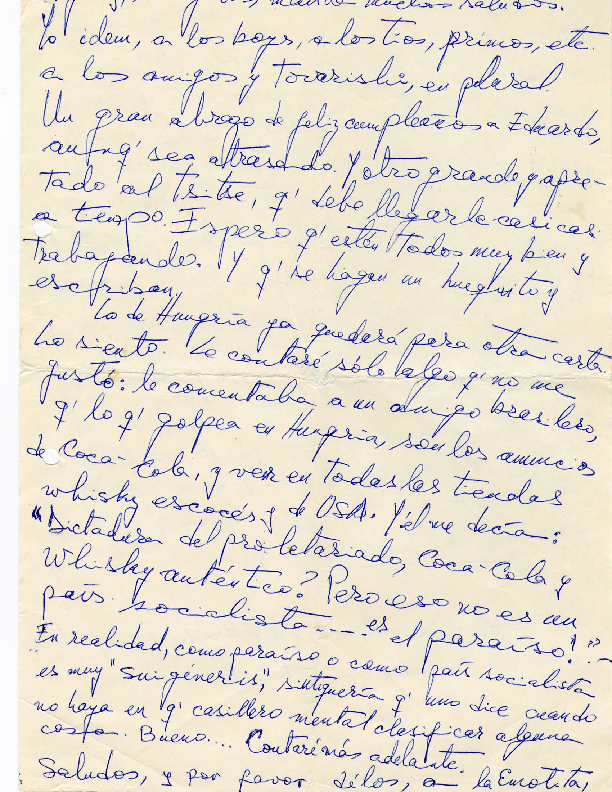 muchos saludos.
Yo idem, a los boys, a los tíos, primos, etc.
a los amigos y Tovarishi, en plural.
Un gran abrazo de feliz cumpleaños a Eduardo,
aunq' sea atrasado. Y otro grande y apre-
tado al Tsitse, q' debe llegarle casi casi
a tiempo. Espero q' estén todos muy bien y
trabajando. Y q' se hagan un hueguito y
escriban.
Lo de Hungría ya quedará para otra carta.
Lo siento. Le contaré sólo algo q' no me
gustó: le comentaba a un amigo brasilero,
q' lo q' golpea en Hungría, son los anuncios
de Coca-Cola, y ver en todas las tiendas
whisky escocés y de USA. Y él me decía:
"Dictadura del proletariado, Coca-Cola y
Whisky auténtico? Pero eso no es un
país socialista---- es el paraíso!"-
En realidad, como paraíso o como país socialista
es muy "suigéneris", sintiquería q' uno dice cuando
no haya en q' casillero mental clasificar alguna
cosa. Bueno... Contaré más adelante.
Saludos, y por favor délos, a la